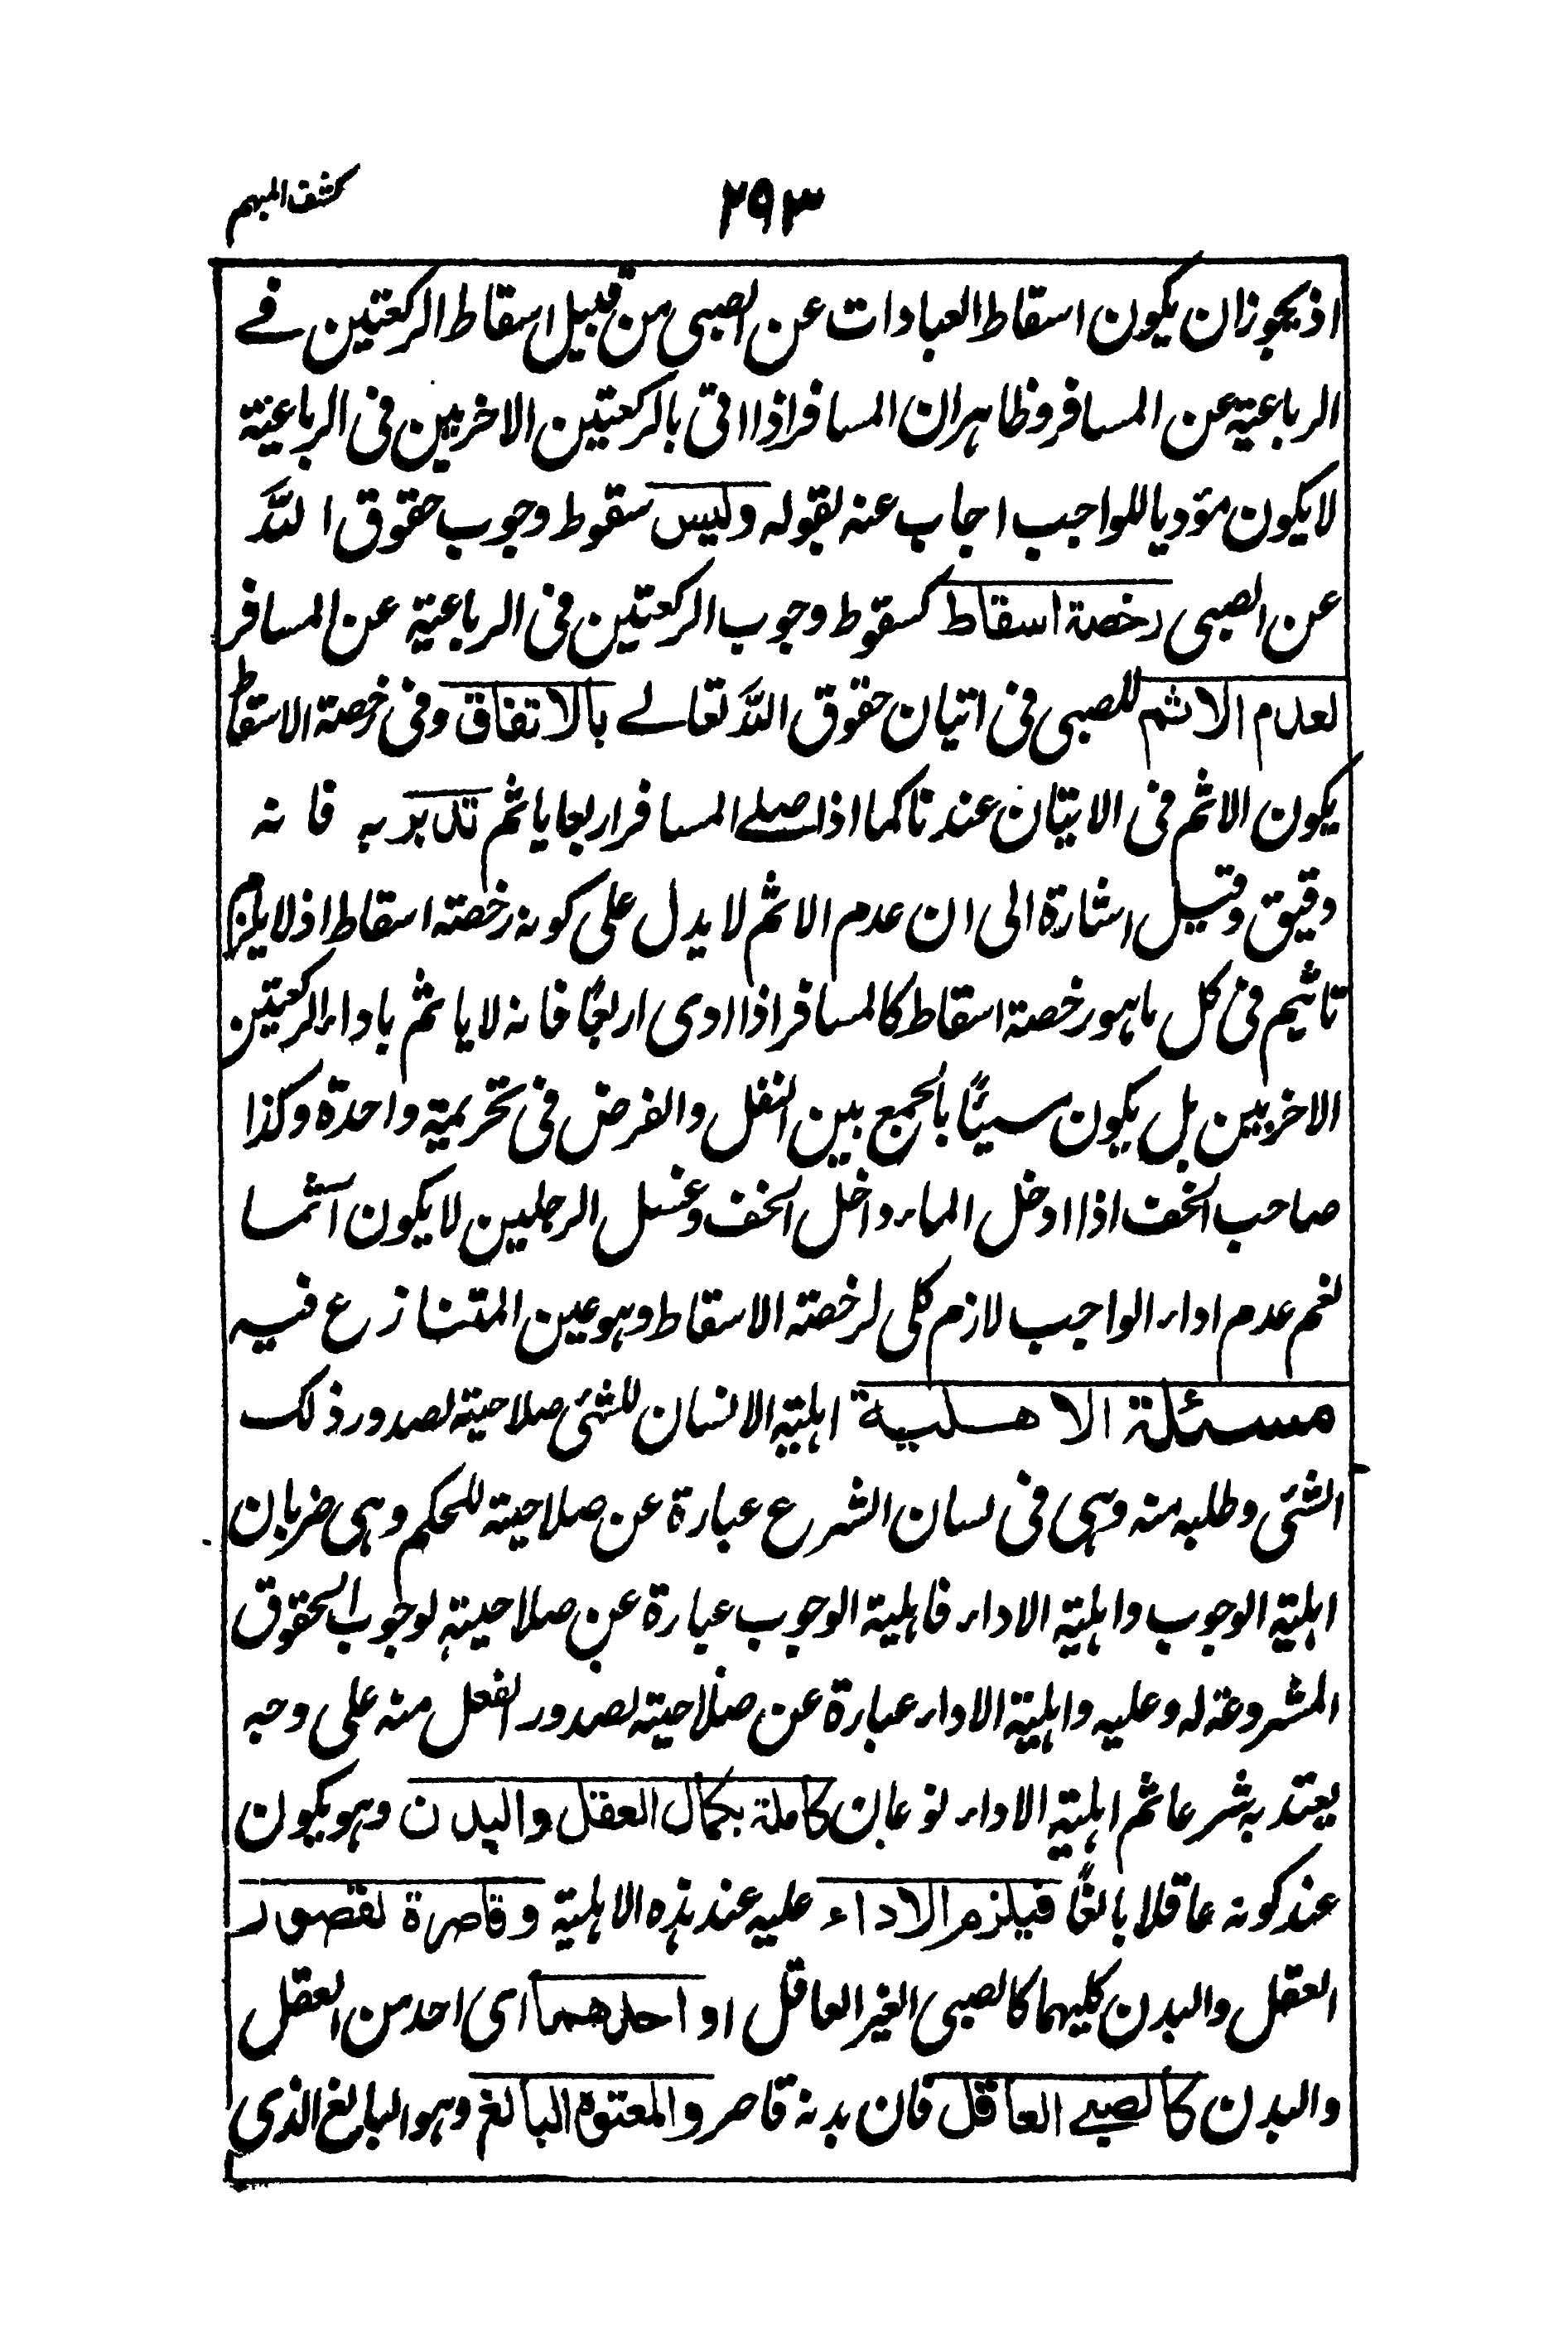 ٢٩٣ كشف المبهم
اذ يجوز ان يكون اسقاط العبادات عن الصبى من قبيل اسقاط الركعتين فے
الرباعية عن المسافر وظاهر ان المسافر اذا اتى بالركعتين الاخريين فى الرباعية
لا يكون مؤديا للواجب اجاب عنه بقوله وليس سقوط وجوب حقوق اللہ
عن الصبى رخصة اسقاط كسقوط وجوب الركعتين فى الرباعية عن المسافر
لعدم الاثم للصبى فى اتيان حقوق اللہ تعالے بالاتفاق وفى رخصة الاسقاط
يكون الاثم فى الاتيان عندنا كما اذا صلے المسافر اربعا ياثم تدبر به فانه
دقيق وقيل اشارة الى ان عدم الاثم لا يدل على كونه رخصة اسقاط اذ لا يلزم
تاثيم فى كل ما هو رخصة اسقاط كالمسافر اذا ادى اربعًا فانه لا ياثم باداء الركعتين
الاخريين بل يكون مسيئًا بالجمع بين النفل والفرض فى تحريمة واحدة وكذا
صاحب الخف اذا ادخل الماء داخل الخف وغسل الرجلين لا يكون آثما
نعم عدم اداء الواجب لازم كلى لرخصة الاسقاط وهو عين المتنازع فيه
مسئلة الاهلية اهلية الانسان للشئ صلاحيته لصدور ذلك
الشئ وطلبه منه وهى فى لسان الشرع عبارة عن صلاحيته للحكم وهى ضربان
اهلية الوجوب واهلية الاداء فاهلية الوجوب عبارة عن صلاحيته لوجوب الحقوق
المشروعة له وعليه واهلية الاداء عبارة عن صلاحيته لصدور الفعل منه على وجه
يعتد به شرعا ثم اهلية الاداء نوعان كاملة بكمال العقل والبدن وهو يكون
عند كونه عاقلا بالغًا فيلزم الاداء عليه عند هذه الاهلية وقاصرة لقصور
العقل والبدن كليهما كالصبى الغير العاقل او احدهما اى احد من العقل
والبدن كالصبے العاقل فان بدنه قاصر والمعتوه البالغ وهو البالغ الذى